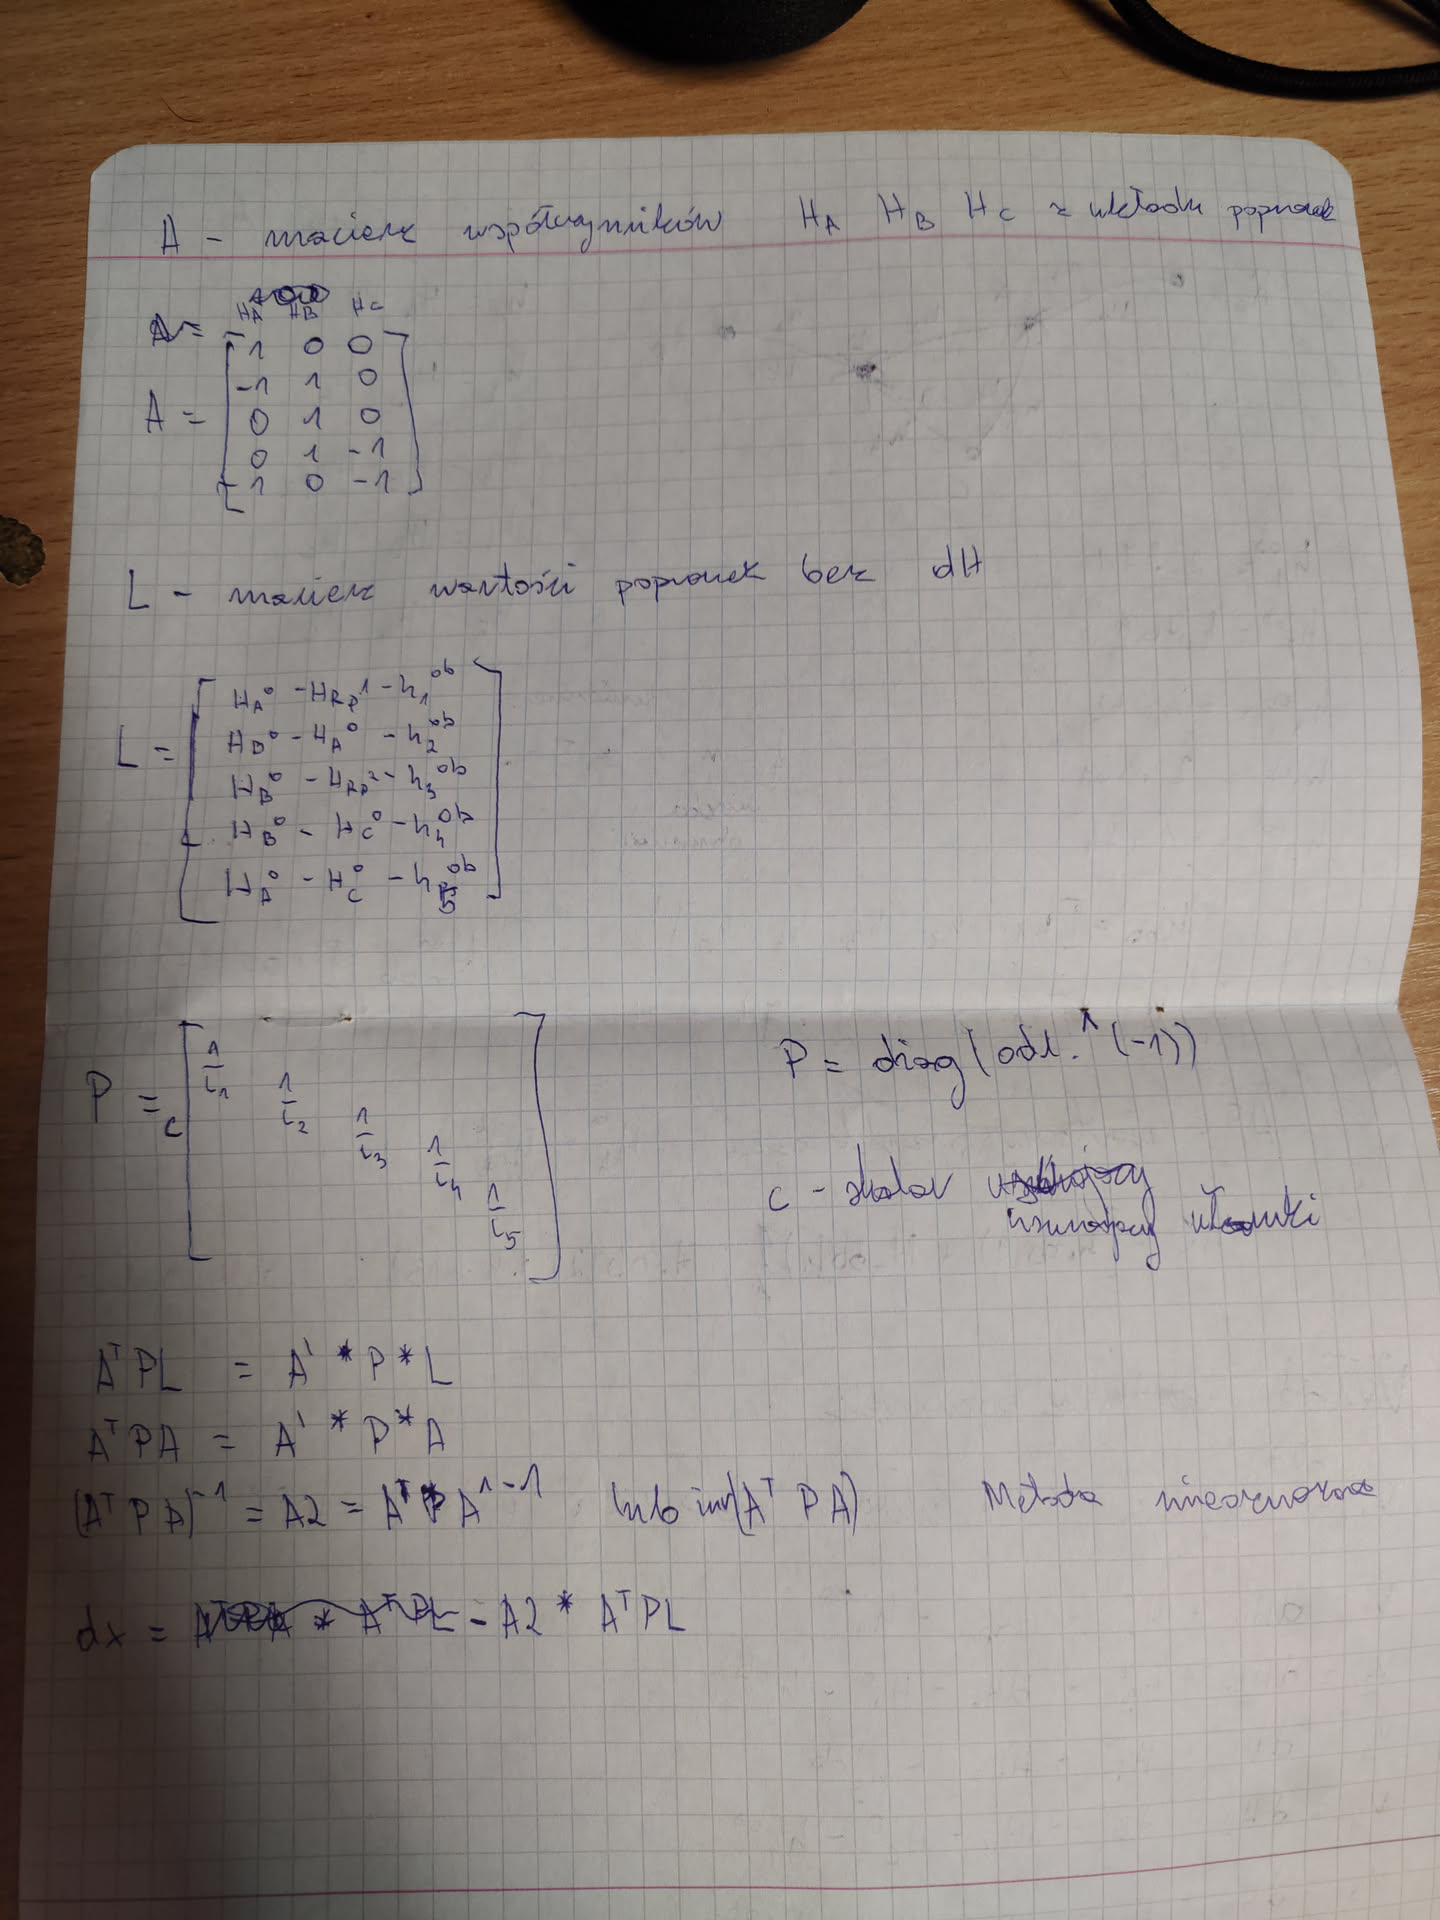 A - macierz współczynników H_A H_B H_C z układu poprawek
H_A H_B H_C
A =
1 0 0
-1 1 0
A = 0 1 0
0 1 -1
1 0 -1
L - macierz wartości poprawek bez dH
H_A^0 - H_Rp^1 - h_1^ob
L = H_B^0 - H_A^0 - h_2^ob
H_B^0 - H_Rp^2 - h_3^ob
H_B^0 - H_C^0 - h_4^ob
H_A^0 - H_C^0 - h_5^ob
P = c [ 1/L_1 1/L_2 1/L_3 1/L_4 1/L_5 ]
P = diag(odl.^(-1))
c - skalar
usuwający ułamki
A^T PL = A' * P * L
A^T PA = A' * P * A
(A^T P A)^-1 = A2 = A^T P A^-1 lub inv(A^T P A) Metoda nieoznaczona
dx = - A2 * A^T PL